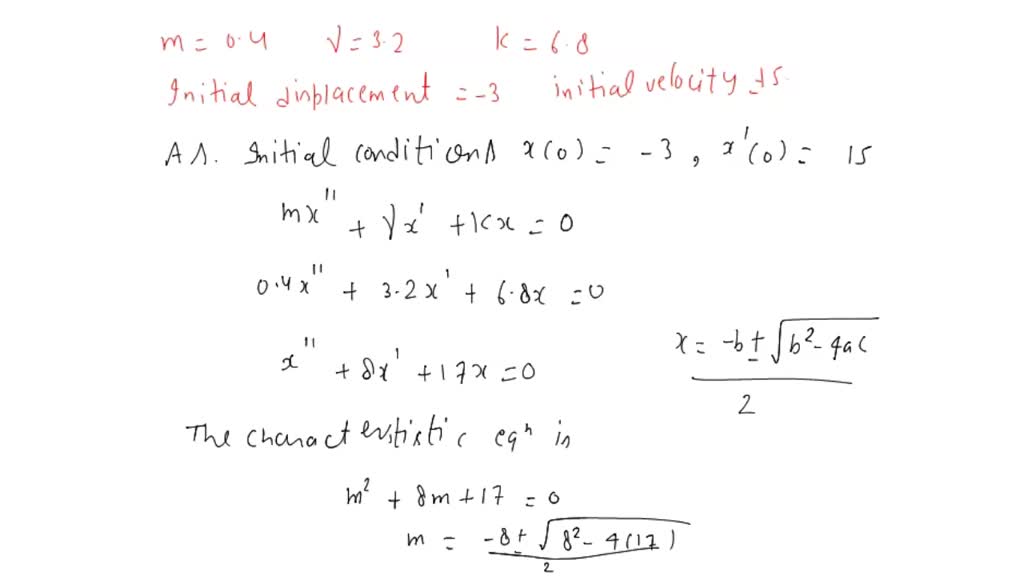 m = 0.4 γ = 3.2 k = 6.8
Initial displacement = -3 initial velocity = 15
As. Initial conditions x(0) = -3, x'(0) = 15
mx'' + γx' + kx = 0
0.4x'' + 3.2x' + 6.8x = 0
x'' + 8x' + 17x = 0
x = -b ± √b² - 4ac
2
The characteristic eqⁿ is
m² + 8m + 17 = 0
m = -8 ± √8² - 4(17)
2